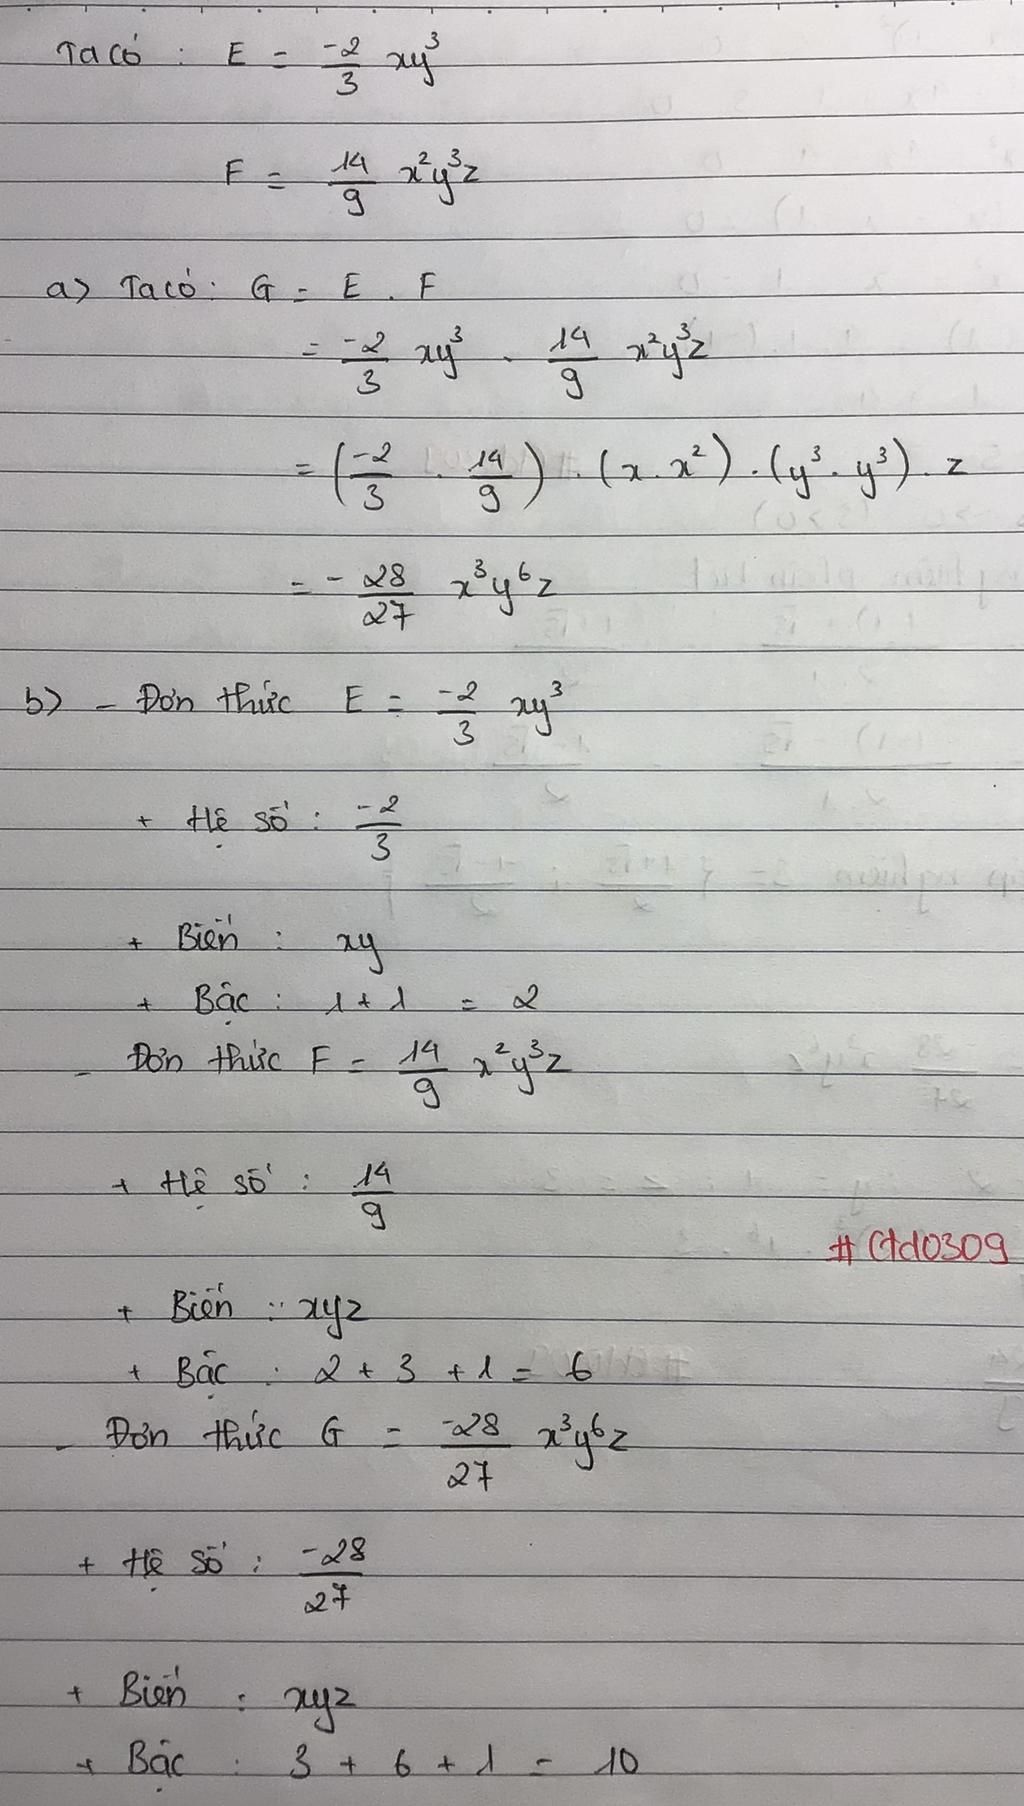 Ta có : E = -2/3 xy³
F = 14/9 x²y³z
a) Ta có : G = E . F
= -2/3 xy³ . 14/9 x²y³z
= (-2/3 . 14/9) . (x . x²) . (y³ . y³) . z
= - 28/27 x³y⁶z
b) - Đơn thức E = -2/3 xy³
+ Hệ số : -2/3
+ Biến : xy
+ Bậc : 1 + 1 = 2
- Đơn thức F = 14/9 x²y³z
+ Hệ số : 14/9
#Ctd0309
+ Biến : xyz
+ Bậc : 2 + 3 + 1 = 6
- Đơn thức G = -28/27 x³y⁶z
+ Hệ số : -28/27
+ Biến : xyz
+ Bậc : 3 + 6 + 1 = 10